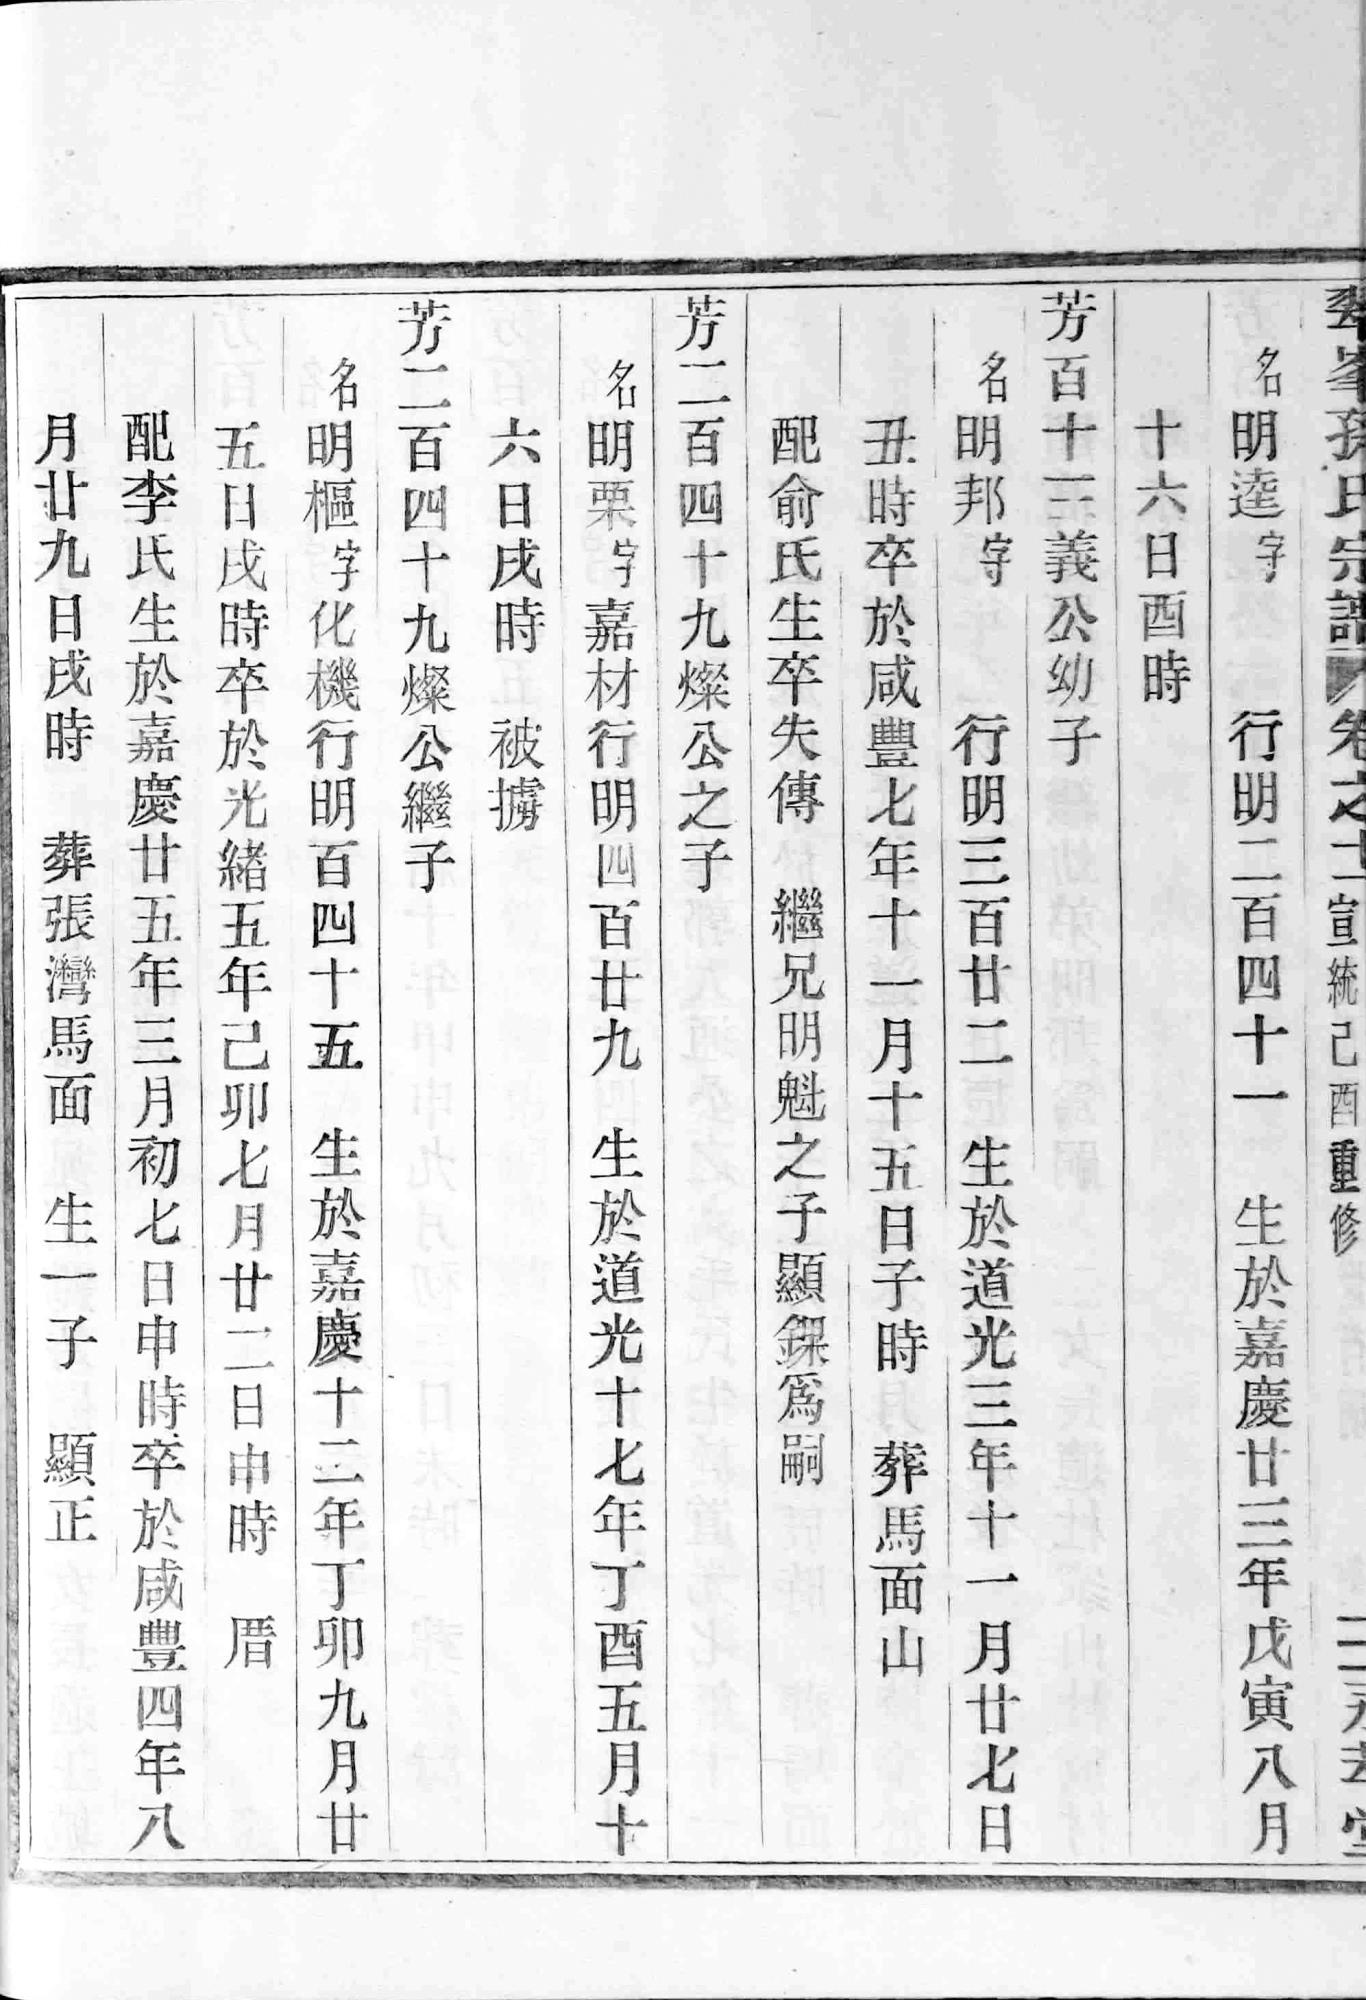 峯孫氏宗譜 卷之十二 宣統己酉重修
名明逵字 行明二百四十一 生於嘉慶廿三年戊寅八月
十六日酉時
芳百十三義公幼子
名明邦字 行明三百廿二 生於道光三年十一月廿七日
丑時卒於咸豐七年十一月十五日子時 葬馬面山
配俞氏生卒失傳 繼兄明魁之子顯鏶為嗣
芳二百四十九燦公之子
名明栗字嘉材行明四百廿九 生於道光十七年丁酉五月十
六日戌時 被擄
芳二百四十九燦公繼子
名明樞字化機行明百四十五 生於嘉慶十二年丁卯九月廿
五日戌時卒於光緒五年己卯七月廿二日申時 厝
配李氏生於嘉慶廿五年三月初七日申時卒於咸豐四年八
月廿九日戌時 葬張灣馬面 生一子 顯正